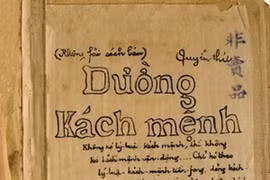 (Không phải sách bán)
Quyển thứ
非賣品
Đường
Kách mệnh
Không có lý luận kách mệnh, thì không
có kách mệnh vận-động.... Chỉ có theo
lý-luận kách-mệnh tiền-fong, đảng kách-